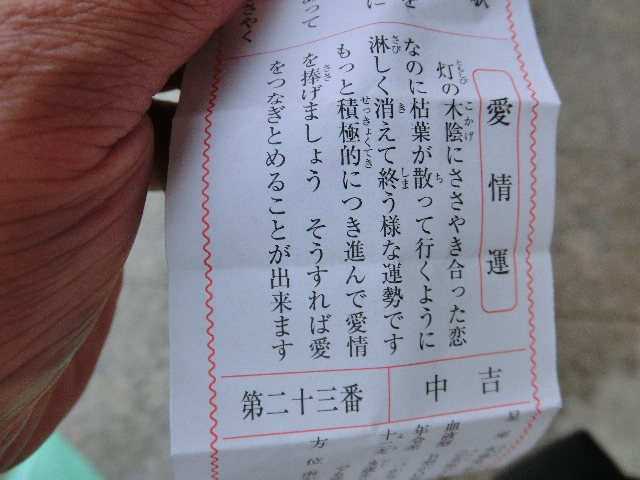 愛情運
灯の木陰にささやき合った恋
なのに枯葉が散って行くように
淋しく消えて終う様な運勢です
もっと積極的につき進んで愛情
を捧げましょう　そうすれば愛
をつなぎとめることが出来ます
吉中
第二十三番
方位